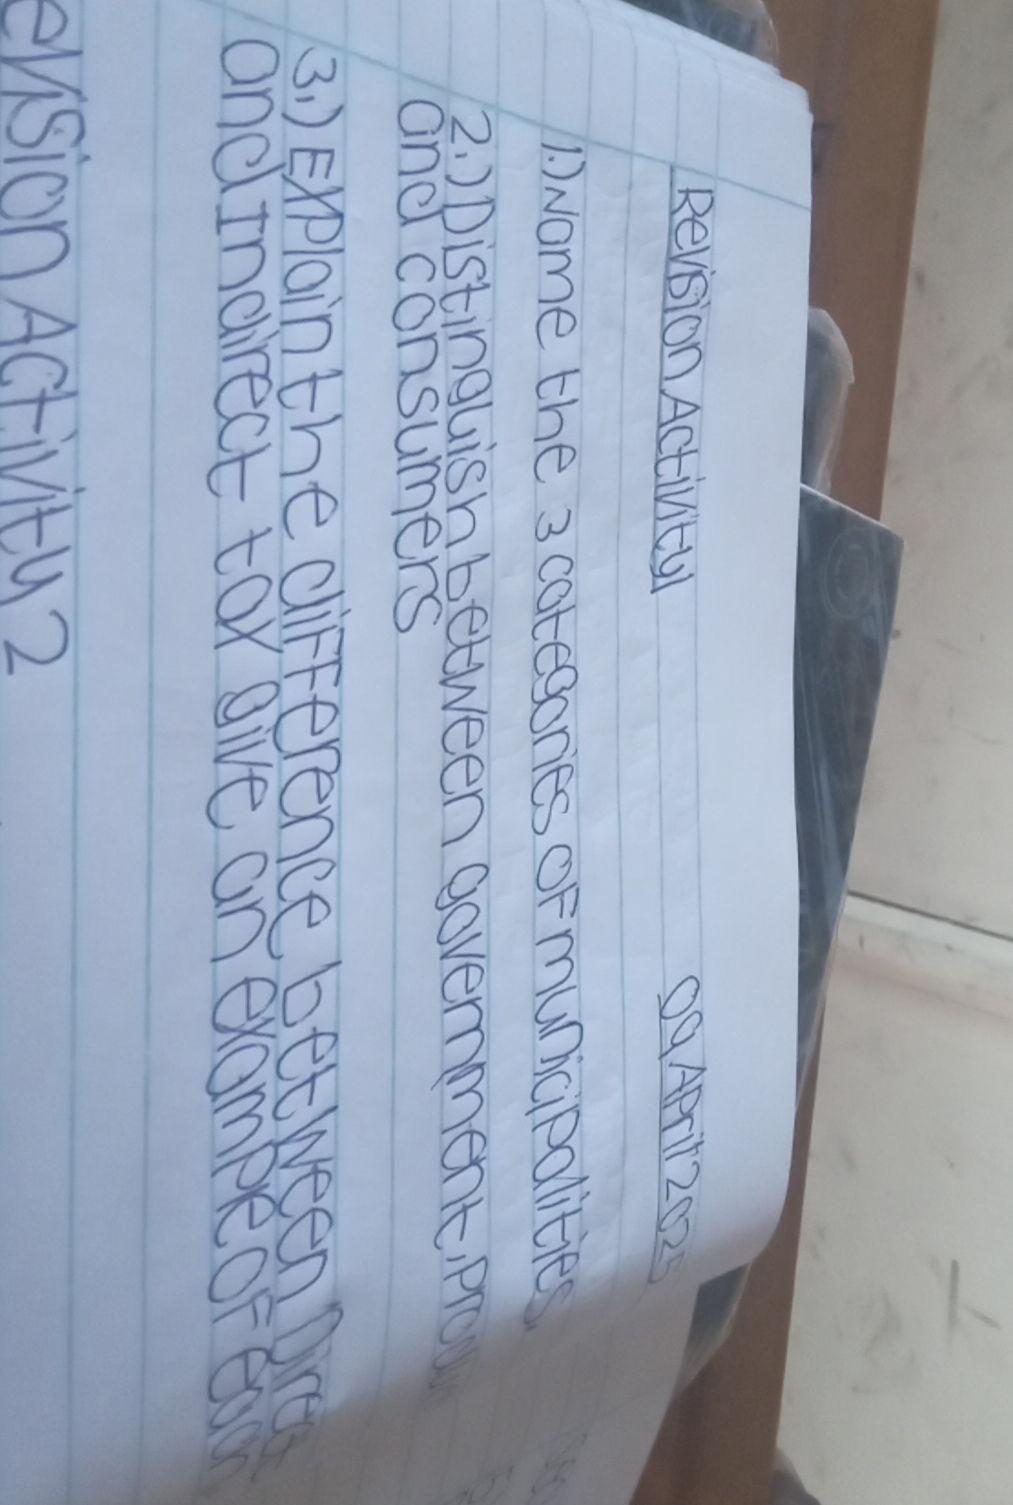 Revision Activity 09 April 2025
1.) Name the 3 categories of municipalities.
2.) Distinguish between government,
and consumers
3.) Explain the difference between Direct
and Indirect tax give an exampe of each
evision Activity 2